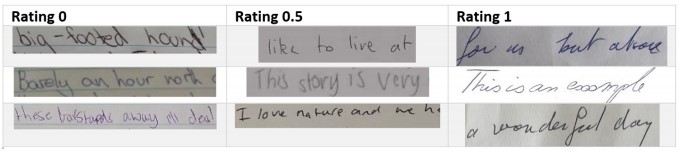 Rating 0 Rating 0.5 Rating 1
big-footed hound
like to live at
for us but above
Barely an hour north
This story is very
This is an example
these bastards away ill deal
I love nature and we ha
a wonderful day